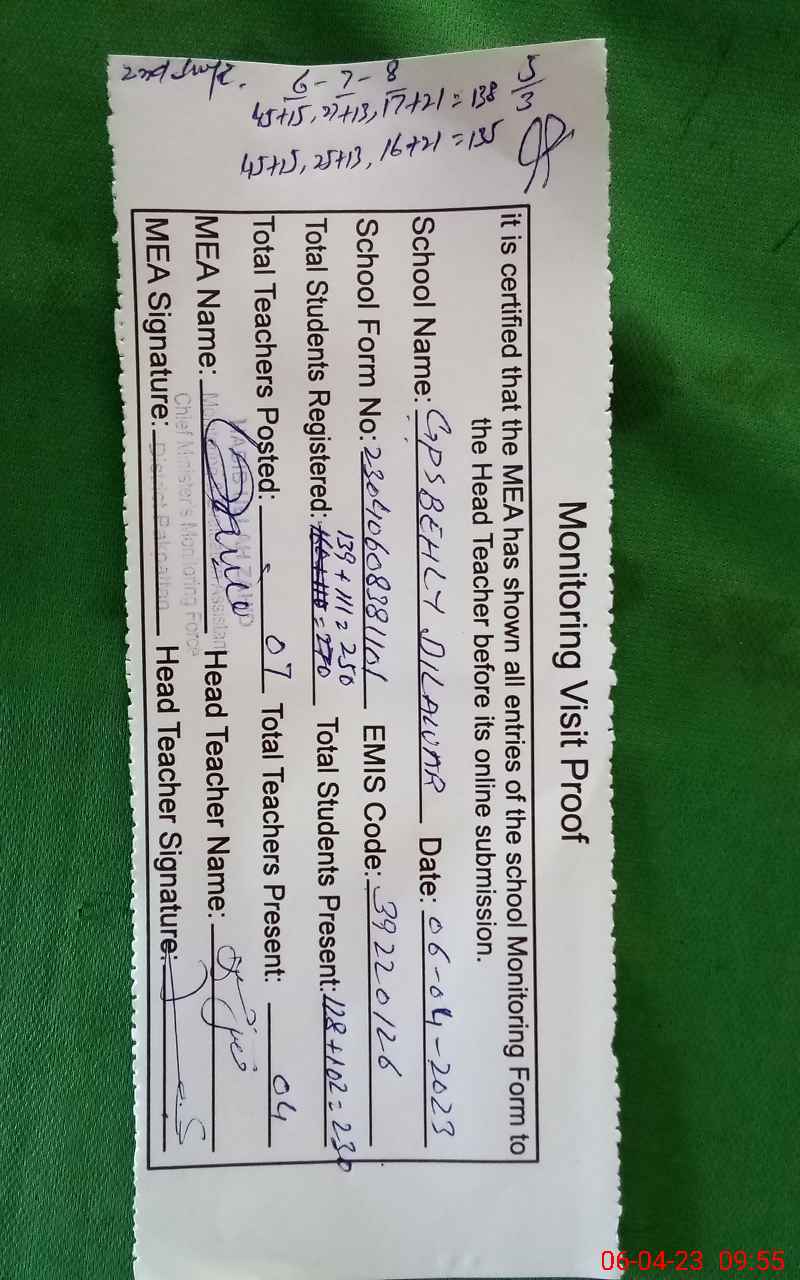 6 - 7 - 8
45+15, 27+13, 17+21 = 138
5/3
45+15, 25+13, 16+21 = 135
Monitoring Visit Proof
it is certified that the MEA has shown all entries of the school Monitoring Form to
the Head Teacher before its online submission.
School Name: GPS BEHLY DILAWAR Date: 06-04-2023
School Form No: 23040608381101 EMIS Code: 39220126
139 + 111 = 250
Total Students Registered: = 270 Total Students Present: 128+102=230
Total Teachers Posted: 07 Total Teachers Present: 04
MEA Name: Head Teacher Name:
MEA Signature: Head Teacher Signature:
Chief Minister's Monitoring Force
District Pakpattan
06-04-23 09:55